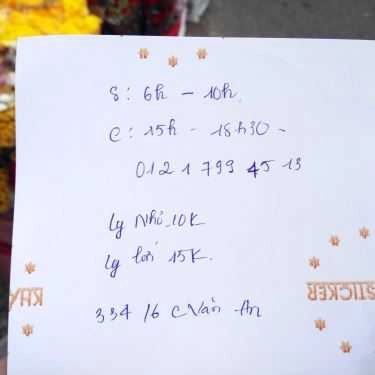 S: 6h - 10h.
C: 15h - 18h30 -
0121 799 45 13
Ly Nhỏ 10K
Ly lớn 15K.
334/6 C Văn An
STICKER